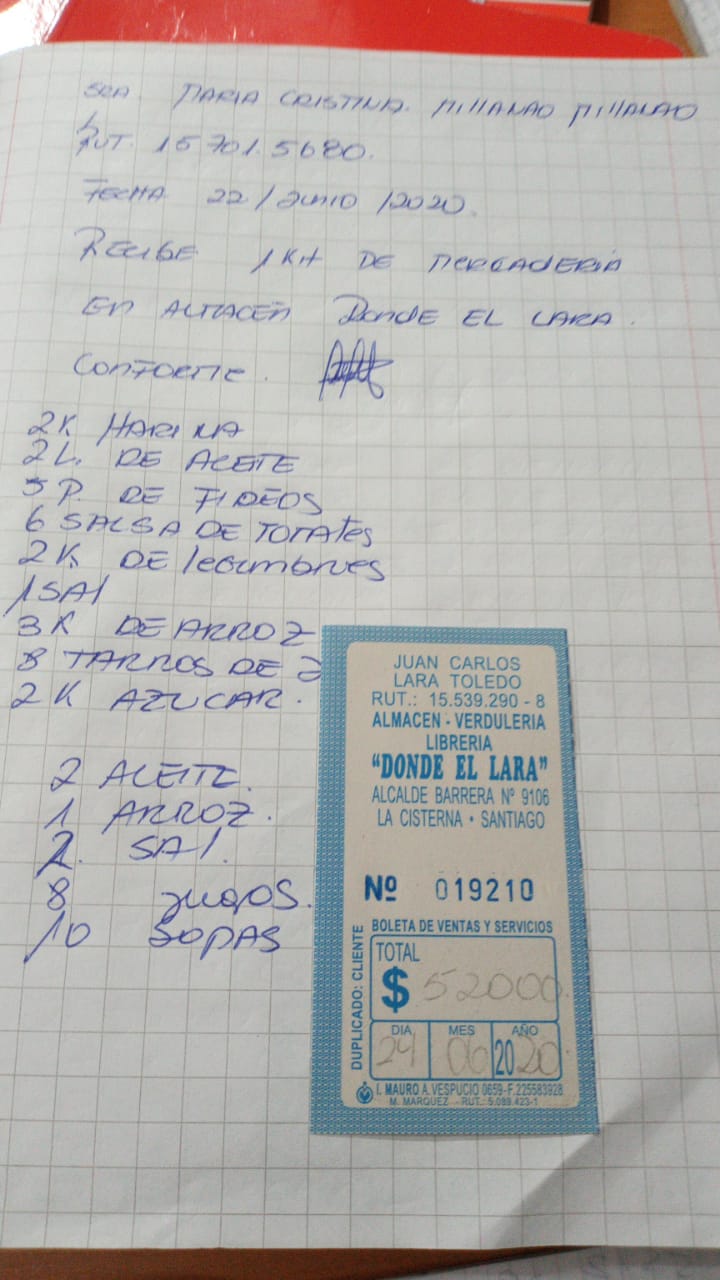 SRA. MARIA CRISTINA. MILLANAO MILLANAO
RUT. 15 701.5680.
FECHA 22/JUNIO/2020.
RECIBE 1 Kit DE MERCADERIA
En ALMACEN Donde EL LARA.
CONFORME.
2K HARINA
2L. DE ACEITE
5 P. DE FIDEOS
6 SALSA DE TOMATES
2K DE legumbres
1 SAl
3K DE ARROZ
8 TARROS DE
2K AZUCAR.
2 ACEITE.
1 ARROZ.
2. SAl.
8 Jugos.
10 SOPAS
JUAN CARLOS
LARA TOLEDO
RUT.: 15.539.290 - 8
ALMACEN - VERDULERIA
LIBRERIA
"DONDE EL LARA"
ALCALDE BARRERA Nº 9106
LA CISTERNA • SANTIAGO
Nº 019210
BOLETA DE VENTAS Y SERVICIOS
DUPLICADO: CLIENTE
TOTAL
$ 52000
DIA MES AÑO
24 06 2020
I. MAURO A. VESPUCIO 0659-F.225583928
M. MARQUEZ - RUT.: 5.089.423-1